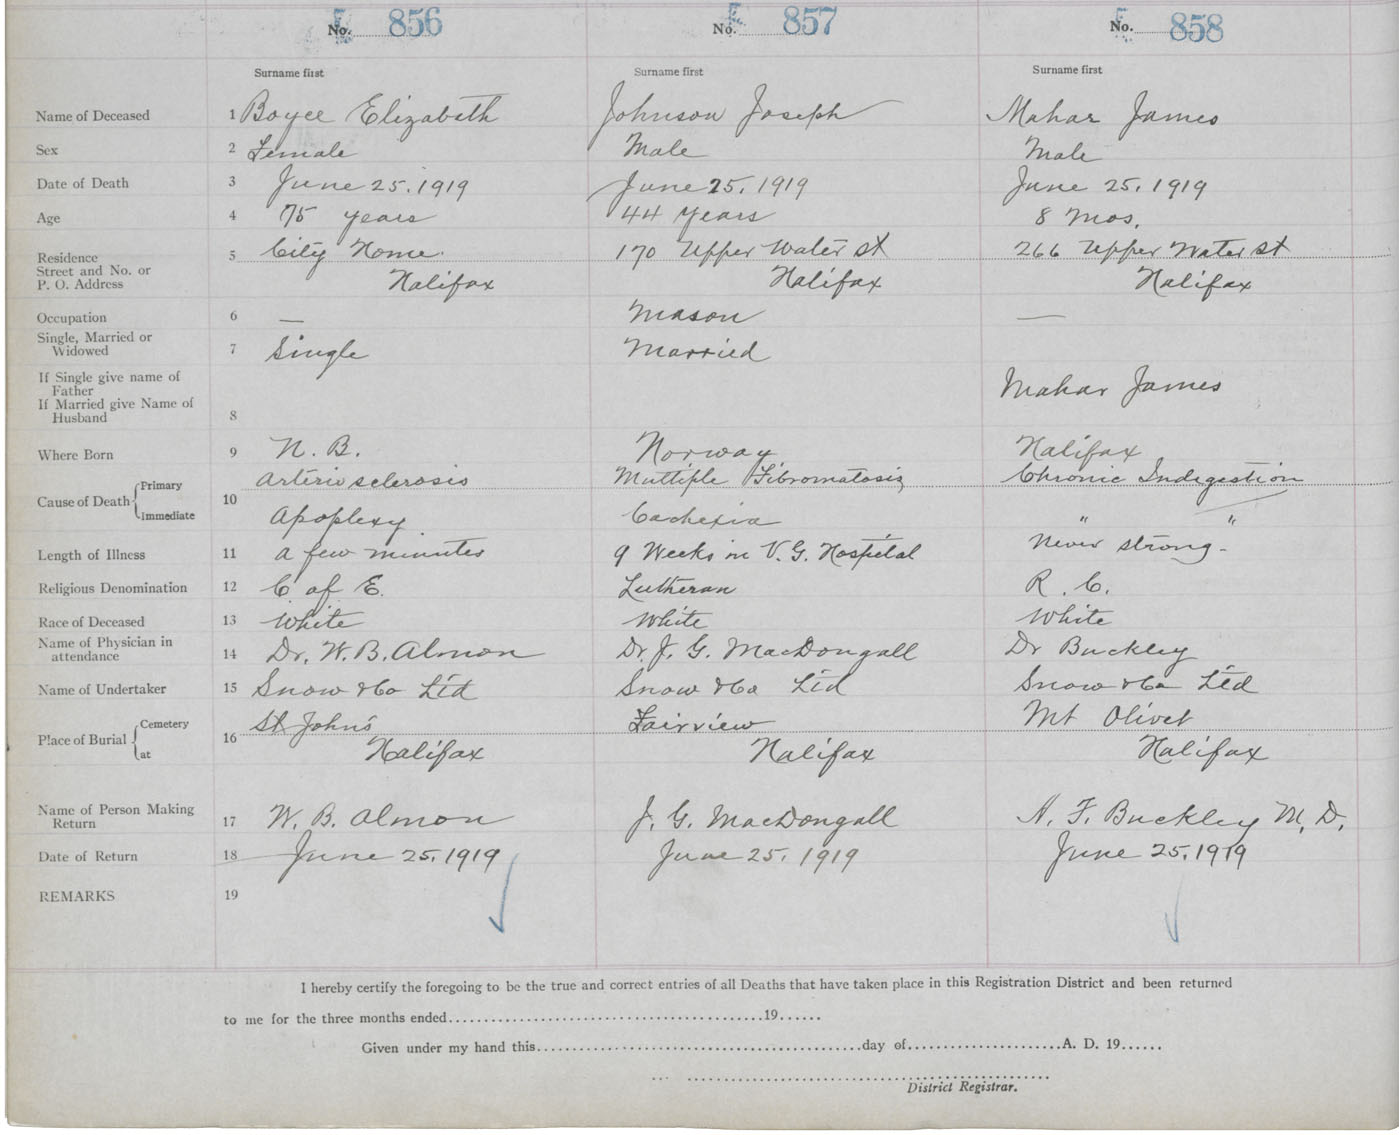 No. 856 No. 857 No. 858
Surname first Surname first Surname first
Name of Deceased 1 Boyce Elizabeth Johnson Joseph Mahar James
Sex 2 Female Male Male
Date of Death 3 June 25. 1919 June 25, 1919 June 25, 1919
Age 4 75 years 44 years 8 Mos.
Residence 5 City Home. 170 Upper Water St 266 Upper Water St
Street and No. or
P. O. Address Halifax Halifax Halifax
Occupation 6 — Mason —
Single, Married or
Widowed 7 Single Married
If Single give name of
Father Mahar James
If Married give Name of
Husband 8
Where Born 9 N. B. Norway Halifax
Cause of Death 10
Primary Arterio sclerosis Multiple Fibromatosis Chronic Indigestion
Immediate Apoplexy Cachexia " "
Length of Illness 11 a few minutes 9 Weeks in V. G. Hospital Never strong -
Religious Denomination 12 C. of E. Lutheran R. C.
Race of Deceased 13 White White White
Name of Physician in
attendance 14 Dr. W. B. Almon Dr. J. G. MacDougall Dr Buckley
Name of Undertaker 15 Snow & Co Ltd Snow & Co Ltd Snow & Co Ltd
Place of Burial 16
Cemetery St John's Fairview Mt Olivet
at Halifax Halifax Halifax
Name of Person Making
Return 17 W. B. Almon J. G. MacDougall A. F. Buckley M. D.
Date of Return 18 June 25, 1919 June 25, 1919 June 25, 1919
REMARKS 19
I hereby certify the foregoing to be the true and correct entries of all Deaths that have taken place in this Registration District and been returned
to me for the three months ended 19
Given under my hand this day of A. D. 19
District Registrar.